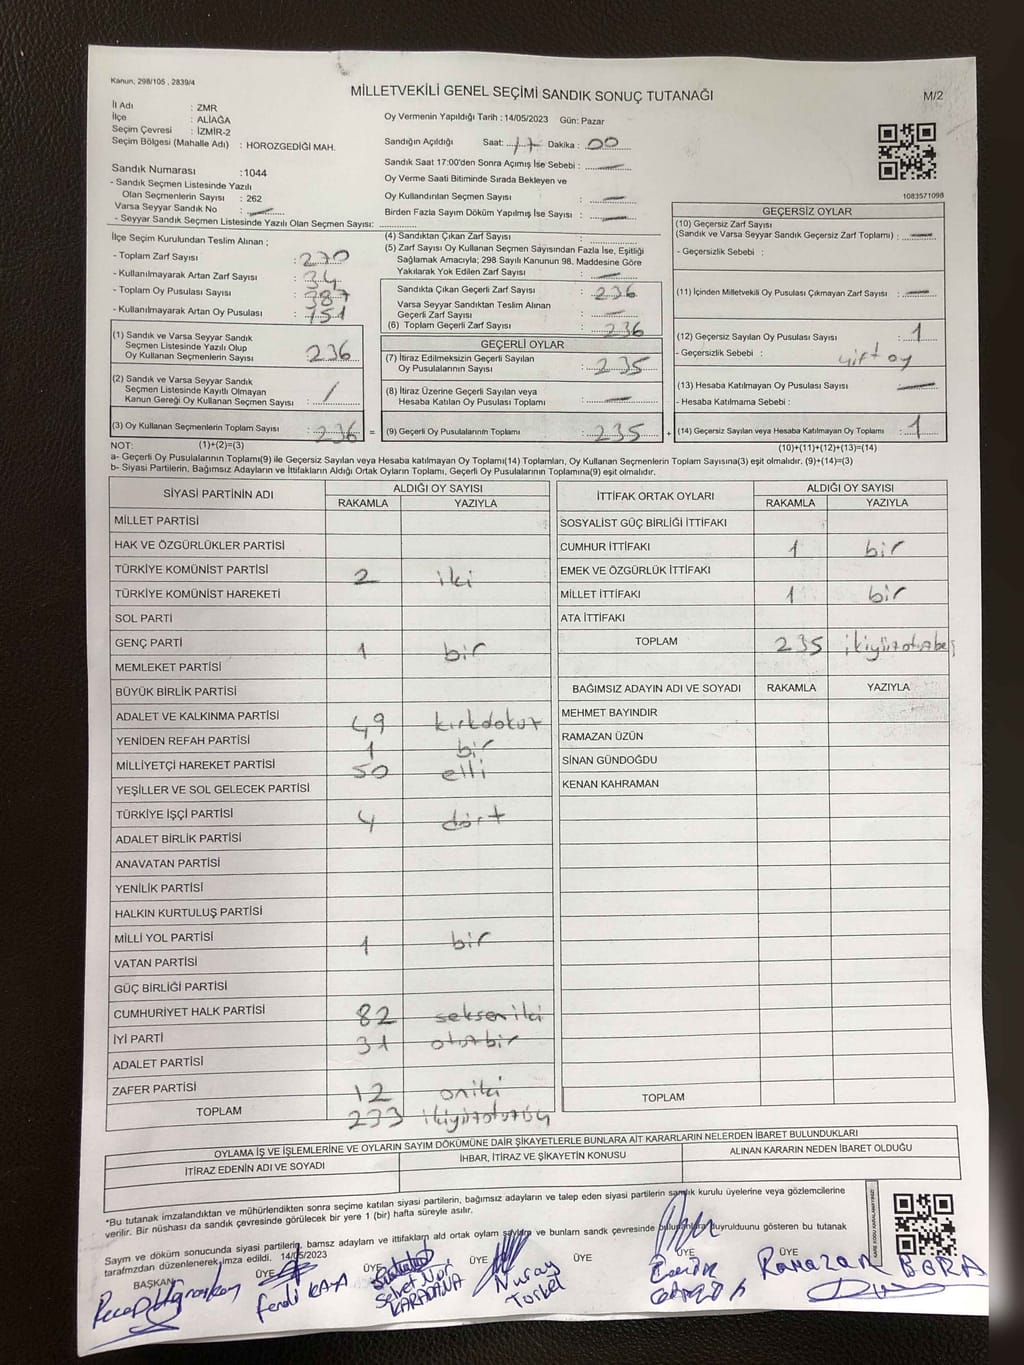 Kanun, 298/105 , 2839/4
MİLLETVEKİLİ GENEL SEÇİMİ SANDIK SONUÇ TUTANAĞI
M/2
İl Adı : ZMR
İlçe : ALİAĞA
Seçim Çevresi : İZMİR-2
Seçim Bölgesi (Mahalle Adı) : HOROZGEDİĞİ MAH.
Sandık Numarası :1044
- Sandık Seçmen Listesinde Yazılı
Olan Seçmenlerin Sayısı : 262
Varsa Seyyar Sandık No :
- Seyyar Sandık Seçmen Listesinde Yazılı Olan Seçmen Sayısı:
Oy Vermenin Yapıldığı Tarih : 14/05/2023 Gün: Pazar
Sandığın Açıldığı Saat: 17 Dakika : 00
Sandık Saat 17:00'den Sonra Açımış İse Sebebi : —
Oy Verme Saati Bitiminde Sırada Bekleyen ve
Oy Kullandırılan Seçmen Sayısı : —
Birden Fazla Sayım Döküm Yapılmış İse Sayısı : —
1083571098
İlçe Seçim Kurulundan Teslim Alınan ;
- Toplam Zarf Sayısı : 270
- Kullanılmayarak Artan Zarf Sayısı : 34
- Toplam Oy Pusulası Sayısı : 387
- Kullanılmayarak Artan Oy Pusulası : 151
(1) Sandık ve Varsa Seyyar Sandık
Seçmen Listesinde Yazılı Olup
Oy Kullanan Seçmenlerin Sayısı : 236
(2) Sandık ve Varsa Seyyar Sandık
Seçmen Listesinde Kayıtlı Olmayan
Kanun Gereği Oy Kullanan Seçmen Sayısı : /
(3) Oy Kullanan Seçmenlerin Toplam Sayısı : 236 =
(4) Sandıktan Çıkan Zarf Sayısı :
(5) Zarf Sayısı Oy Kullanan Seçmen Sayısından Fazla İse, Eşitliği
Sağlamak Amacıyla; 298 Sayılı Kanunun 98. Maddesine Göre
Yakılarak Yok Edilen Zarf Sayısı : —
Sandıkta Çıkan Geçerli Zarf Sayısı : 236
Varsa Seyyar Sandıktan Teslim Alınan
Geçerli Zarf Sayısı : —
(6) Toplam Geçerli Zarf Sayısı : 236
GEÇERLİ OYLAR
(7) İtiraz Edilmeksizin Geçerli Sayılan
Oy Pusulalarının Sayısı : 235
(8) İtiraz Üzerine Geçerli Sayılan veya
Hesaba Katılan Oy Pusulası Toplamı : —
(9) Geçerli Oy Pusulalarının Toplamı : 235 +
GEÇERSİZ OYLAR
(10) Geçersiz Zarf Sayısı
(Sandık ve Varsa Seyyar Sandık Geçersiz Zarf Toplamı) : —
- Geçersizlik Sebebi :
(11) İçinden Milletvekili Oy Pusulası Çıkmayan Zarf Sayısı : —
(12) Geçersiz Sayılan Oy Pusulası Sayısı : 1
- Geçersizlik Sebebi : çift oy
(13) Hesaba Katılmayan Oy Pusulası Sayısı : —
- Hesaba Katılmama Sebebi :
(14) Geçersiz Sayılan veya Hesaba Katılmayan Oy Toplamı : 1
NOT: (1)+(2)=(3)
(10)+(11)+(12)+(13)=(14)
a- Geçerli Oy Pusulalarının Toplamı(9) ile Geçersiz Sayılan veya Hesaba Katılmayan Oy Toplamı(14) Toplamları, Oy Kullanan Seçmenlerin Toplam Sayısına(3) eşit olmalıdır. (9)+(14)=(3)
b- Siyasi Partilerin, Bağımsız Adayların ve İttifakların Aldığı Ortak Oyların Toplamı, Geçerli Oy Pusulalarının Toplamına(9) eşit olmalıdır.
SİYASİ PARTİNİN ADI ALDIĞI OY SAYISI
RAKAMLA YAZIYLA
MİLLET PARTİSİ
HAK VE ÖZGÜRLÜKLER PARTİSİ
TÜRKİYE KOMÜNİST PARTİSİ 2 iki
TÜRKİYE KOMÜNİST HAREKETİ
SOL PARTİ
GENÇ PARTİ 1 bir
MEMLEKET PARTİSİ
BÜYÜK BİRLİK PARTİSİ
ADALET VE KALKINMA PARTİSİ 49 kırkdokuz
YENİDEN REFAH PARTİSİ 1 bir
MİLLİYETÇİ HAREKET PARTİSİ 50 elli
YEŞİLLER VE SOL GELECEK PARTİSİ
TÜRKİYE İŞÇİ PARTİSİ 4 dört
ADALET BİRLİK PARTİSİ
ANAVATAN PARTİSİ
YENİLİK PARTİSİ
HALKIN KURTULUŞ PARTİSİ
MİLLİ YOL PARTİSİ 1 bir
VATAN PARTİSİ
GÜÇ BİRLİĞİ PARTİSİ
CUMHURİYET HALK PARTİSİ 82 sekseniki
İYİ PARTİ 31 otuzbir
ADALET PARTİSİ
ZAFER PARTİSİ 12 oniki
TOPLAM 233 ikiyüzotuzüç
İTTİFAK ORTAK OYLARI ALDIĞI OY SAYISI
RAKAMLA YAZIYLA
SOSYALİST GÜÇ BİRLİĞİ İTTİFAKI
CUMHUR İTTİFAKI 1 bir
EMEK VE ÖZGÜRLÜK İTTİFAKI
MİLLET İTTİFAKI 1 bir
ATA İTTİFAKI
TOPLAM 235 ikiyüzotuzbeş
BAĞIMSIZ ADAYIN ADI VE SOYADI RAKAMLA YAZIYLA
MEHMET BAYINDIR
RAMAZAN ÜZÜN
SİNAN GÜNDOĞDU
KENAN KAHRAMAN
TOPLAM
OYLAMA İŞ VE İŞLEMLERİNE VE OYLARIN SAYIM DÖKÜMÜNE DAİR ŞİKAYETLERLE BUNLARA AİT KARARLARIN NELERDEN İBARET BULUNDUKLARI
İTİRAZ EDENİN ADI VE SOYADI İHBAR, İTİRAZ VE ŞİKAYETİN KONUSU ALINAN KARARIN NEDEN İBARET OLDUĞU
"Bu tutanak imzalandıktan ve mühürlendikten sonra seçime katılan siyasi partilerin, bağımsız adayların ve talep eden siyasi partilerin sandık kurulu üyelerine veya gözlemcilerine
verilir. Bir nüshası da sandık çevresinde görülecek bir yere 1 (bir) hafta süreyle asılır.
Sayım ve döküm sonucunda siyasi partilerin, bamsız adayların ve ittifakların ald ortak oyların sayılarını ve bunların sandık çevresinde duyrulduunu gösteren bu tutanak
tarafmzdan düzenlenerek imza edildi. 14/05/2023
BAŞKAN ÜYE ÜYE ÜYE ÜYE ÜYE ÜYE
Ferdi KAYA
KARADANA
Nuray
Ramazan BORA